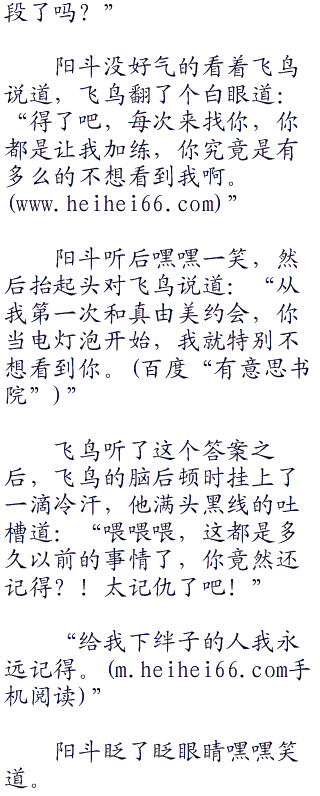 段了吗？”
阳斗没好气的看着飞鸟
说道，飞鸟翻了个白眼道：
“得了吧，每次来找你，你
都是让我加练，你究竟是有
多么的不想看到我啊。
(www.heihei66.com)”
阳斗听后嘿嘿一笑，然
后抬起头对飞鸟说道：“从
我第一次和真由美约会，你
当电灯泡开始，我就特别不
想看到你。(百度“有意思书
院”)”
飞鸟听了这个答案之
后，飞鸟的脑后顿时挂上了
一滴冷汗，他满头黑线的吐
槽道：“喂喂喂，这都是多
久以前的事情了，你竟然还
记得？！太记仇了吧！”
“给我下绊子的人我永
远记得。(m.heihei66.com手
机阅读)”
阳斗眨了眨眼睛嘿嘿笑
道。